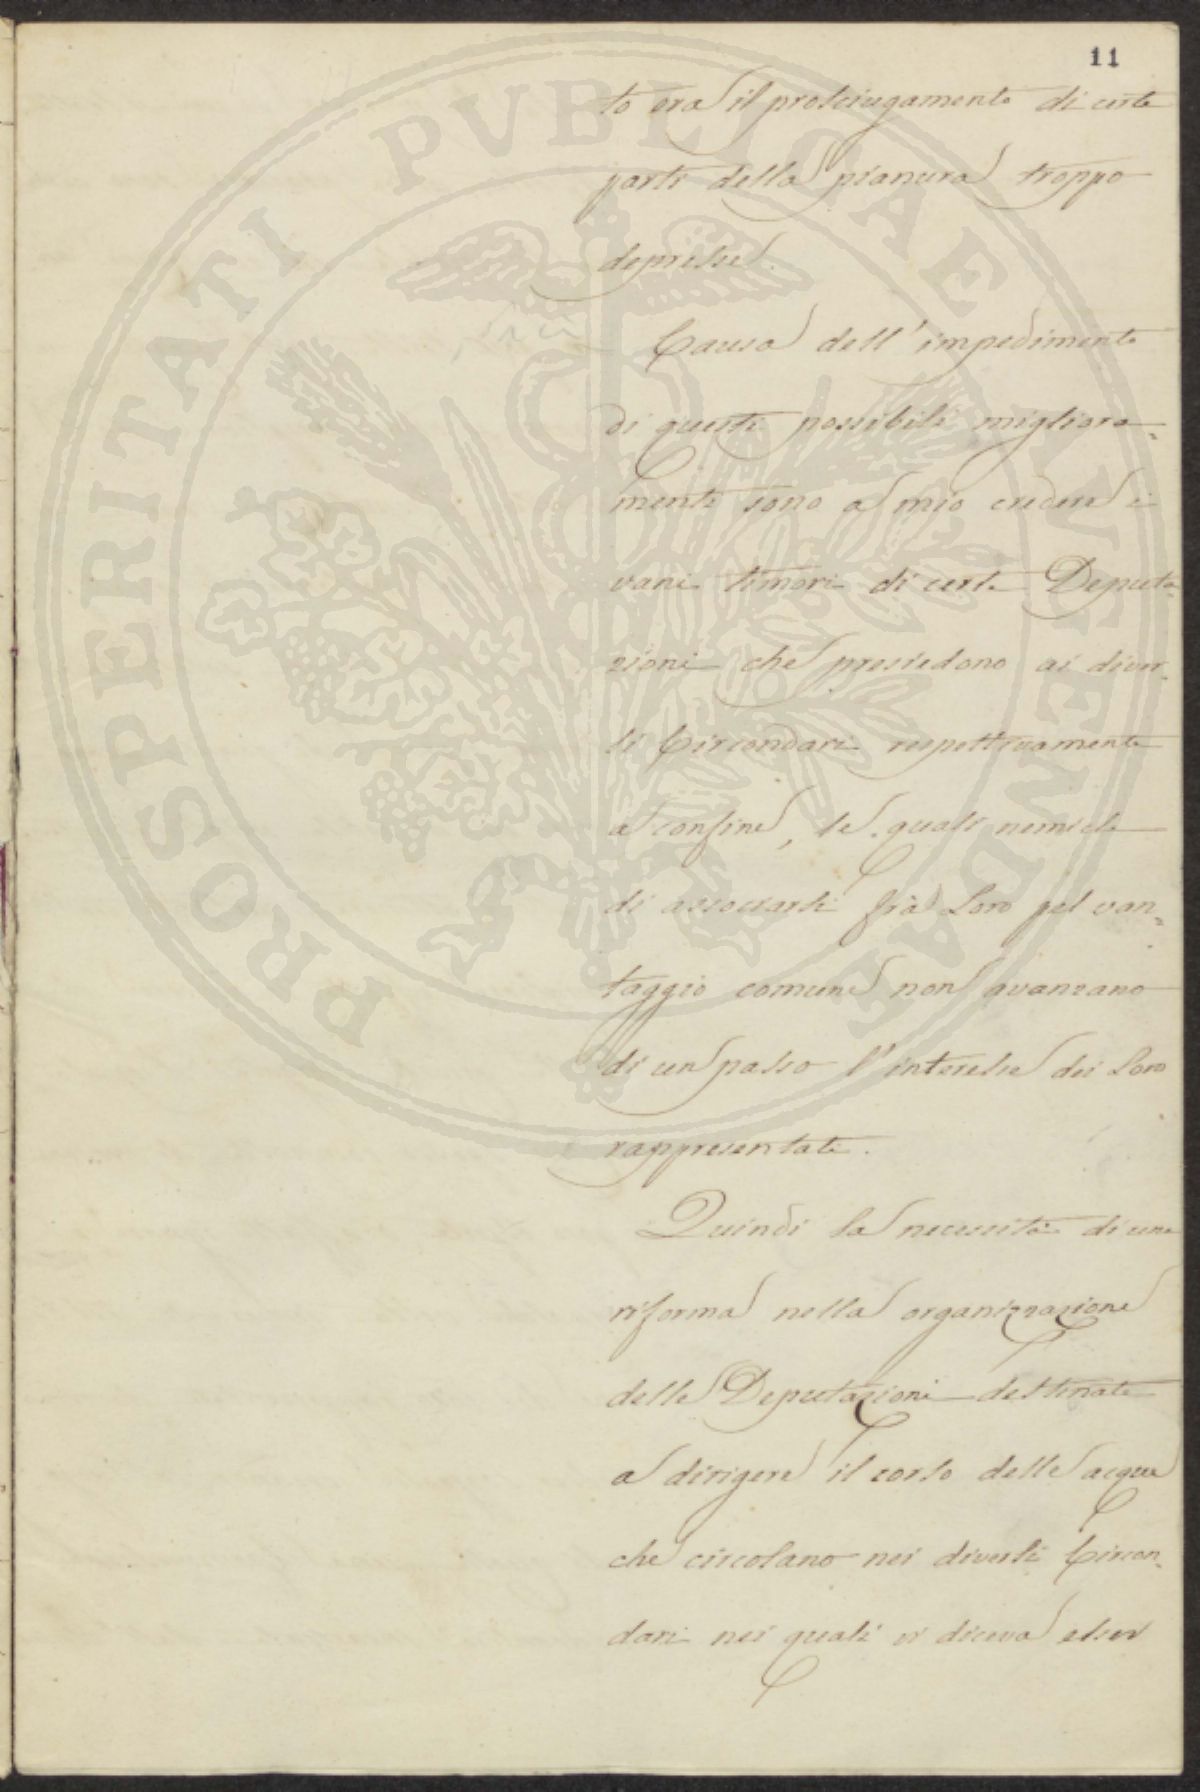 11
to ora il prosciugamento di certe
parti della pianura troppo
depresse.
Causa dell'impedimento
di questi possibili migliora=
menti sono a mio credere i
vani timori di certe Deputa
zioni che presiedono ai diver=
si Circondari respettivamente
a confine, le quali nemiche
di associarsi frà Loro pel van=
taggio comune non avanzano
di un passo l'interesse dei Loro
rappresentati.
Quindi la necessità di una
riforma nella organizzazione
delle Deputazioni destinate
a dirigere il corso delle acque
che circolano nei diversi Circon=
dari nei quali vi diceva esser
PROSPERITATI PVBLICAE AVGENDAE